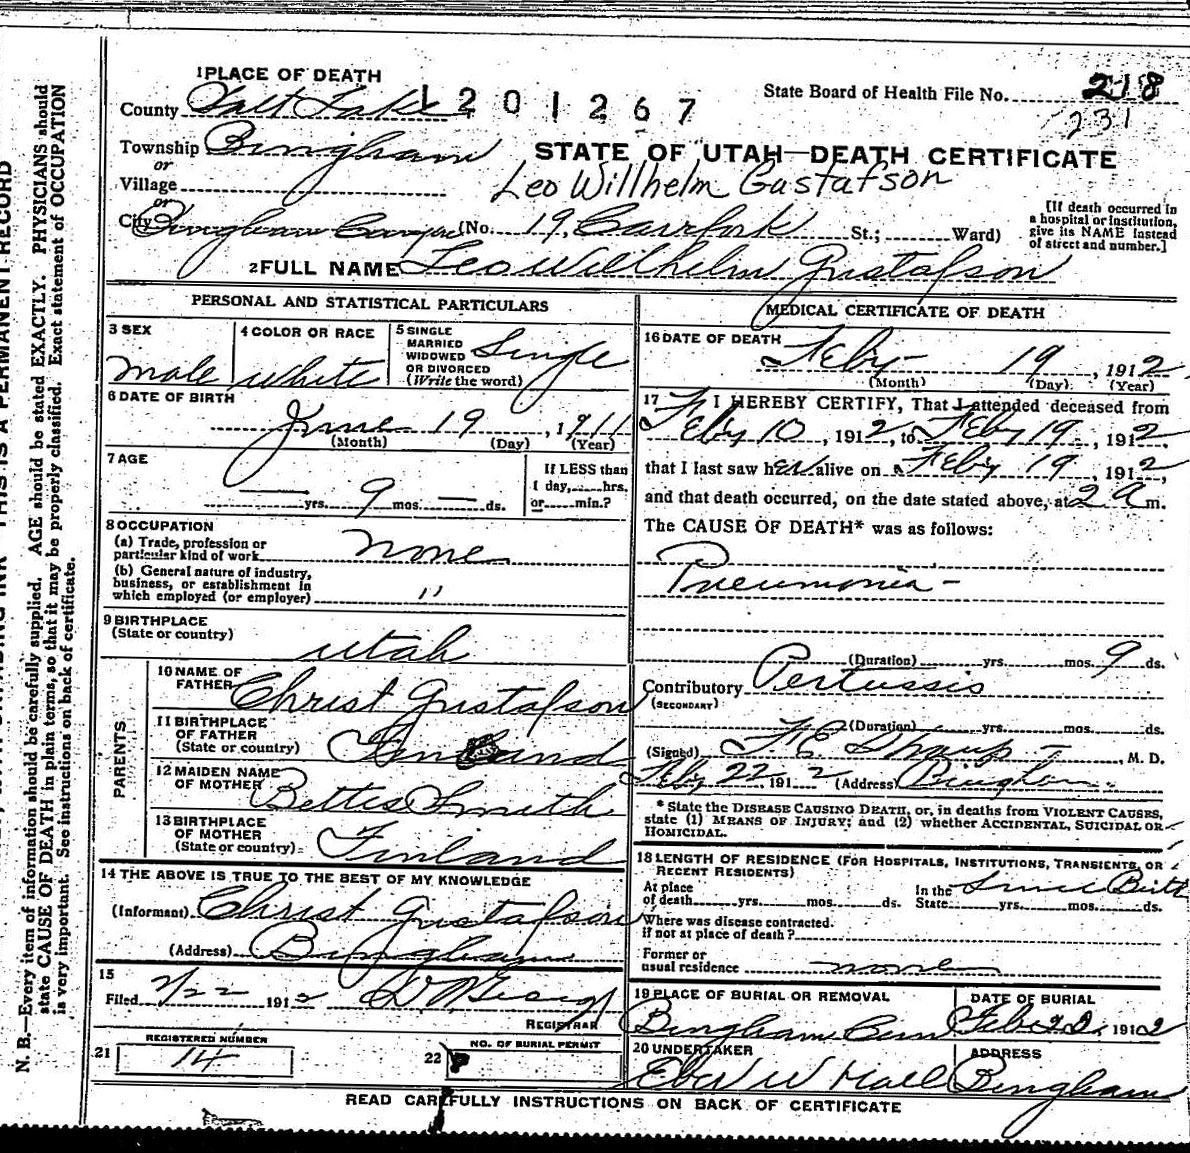 1 PLACE OF DEATH
County Salt Lake 1201267
State Board of Health File No. 218
231
Township Bingham
or
STATE OF UTAH—DEATH CERTIFICATE
Village
Leo Willhelm Gustafson
or
City Bingham Canyon (No. 19, Carrfork St.; Ward)
[If death occurred in
a hospital or institution,
give its NAME instead
of street and number.]
2 FULL NAME Leo Wilhelm Gustafson
PERSONAL AND STATISTICAL PARTICULARS
3 SEX
male
4 COLOR OR RACE
white
5 SINGLE
MARRIED
WIDOWED
OR DIVORCED
(Write the word)
Single
6 DATE OF BIRTH
June 19, 1911
(Month) (Day) (Year)
7 AGE
— yrs. 9 mos. — ds.
If LESS than
1 day, hrs.
or min.?
8 OCCUPATION
(a) Trade, profession or
particular kind of work none
(b) General nature of industry,
business, or establishment in
which employed (or employer) "
9 BIRTHPLACE
(State or country)
Utah
PARENTS
10 NAME OF
FATHER Christ Gustafson
11 BIRTHPLACE
OF FATHER
(State or country) Finland
12 MAIDEN NAME
OF MOTHER Bettis Smith
13 BIRTHPLACE
OF MOTHER
(State or country) Finland
14 THE ABOVE IS TRUE TO THE BEST OF MY KNOWLEDGE
(Informant) Christ Gustafson
(Address) Bingham
15
Filed 2/22 1912
REGISTRAR
REGISTERED NUMBER
21 14
NO. OF BURIAL PERMIT
22
MEDICAL CERTIFICATE OF DEATH
16 DATE OF DEATH
Feby 19, 1912
(Month) (Day) (Year)
17 I HEREBY CERTIFY, That I attended deceased from
Feby 10, 1912, to Feby 19, 1912,
that I last saw h alive on Feby 19, 1912,
and that death occurred, on the date stated above, at 2 a m.
The CAUSE OF DEATH* was as follows:
Pneumonia
(Duration) yrs. mos. 9 ds.
Contributory Pertussis
(SECONDARY)
(Duration) yrs. mos. ds.
(Signed) , M. D.
Feby 22 1912 (Address) Bingham
* State the DISEASE CAUSING DEATH, or, in deaths from VIOLENT CAUSES,
state (1) MEANS OF INJURY; and (2) whether ACCIDENTAL, SUICIDAL OR
HOMICIDAL.
18 LENGTH OF RESIDENCE (FOR HOSPITALS, INSTITUTIONS, TRANSIENTS, OR
RECENT RESIDENTS)
At place
of death yrs. mos. ds.
In the
State yrs. mos. ds.
Since Birth
Where was disease contracted.
if not at place of death?
Former or
usual residence none
19 PLACE OF BURIAL OR REMOVAL
Bingham Cem
DATE OF BURIAL
Feb 22, 1912
20 UNDERTAKER
Eber W Hall
ADDRESS
Bingham
READ CAREFULLY INSTRUCTIONS ON BACK OF CERTIFICATE
N. B.—Every item of information should be carefully supplied. AGE should be stated EXACTLY. PHYSICIANS should
state CAUSE OF DEATH in plain terms, so that it may be properly classified. Exact statement of OCCUPATION
is very important. See instructions on back of certificate.
THIS IS A PERMANENT RECORD